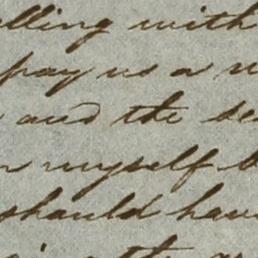 lling with
pay us a
and the se
myself
should hav
the